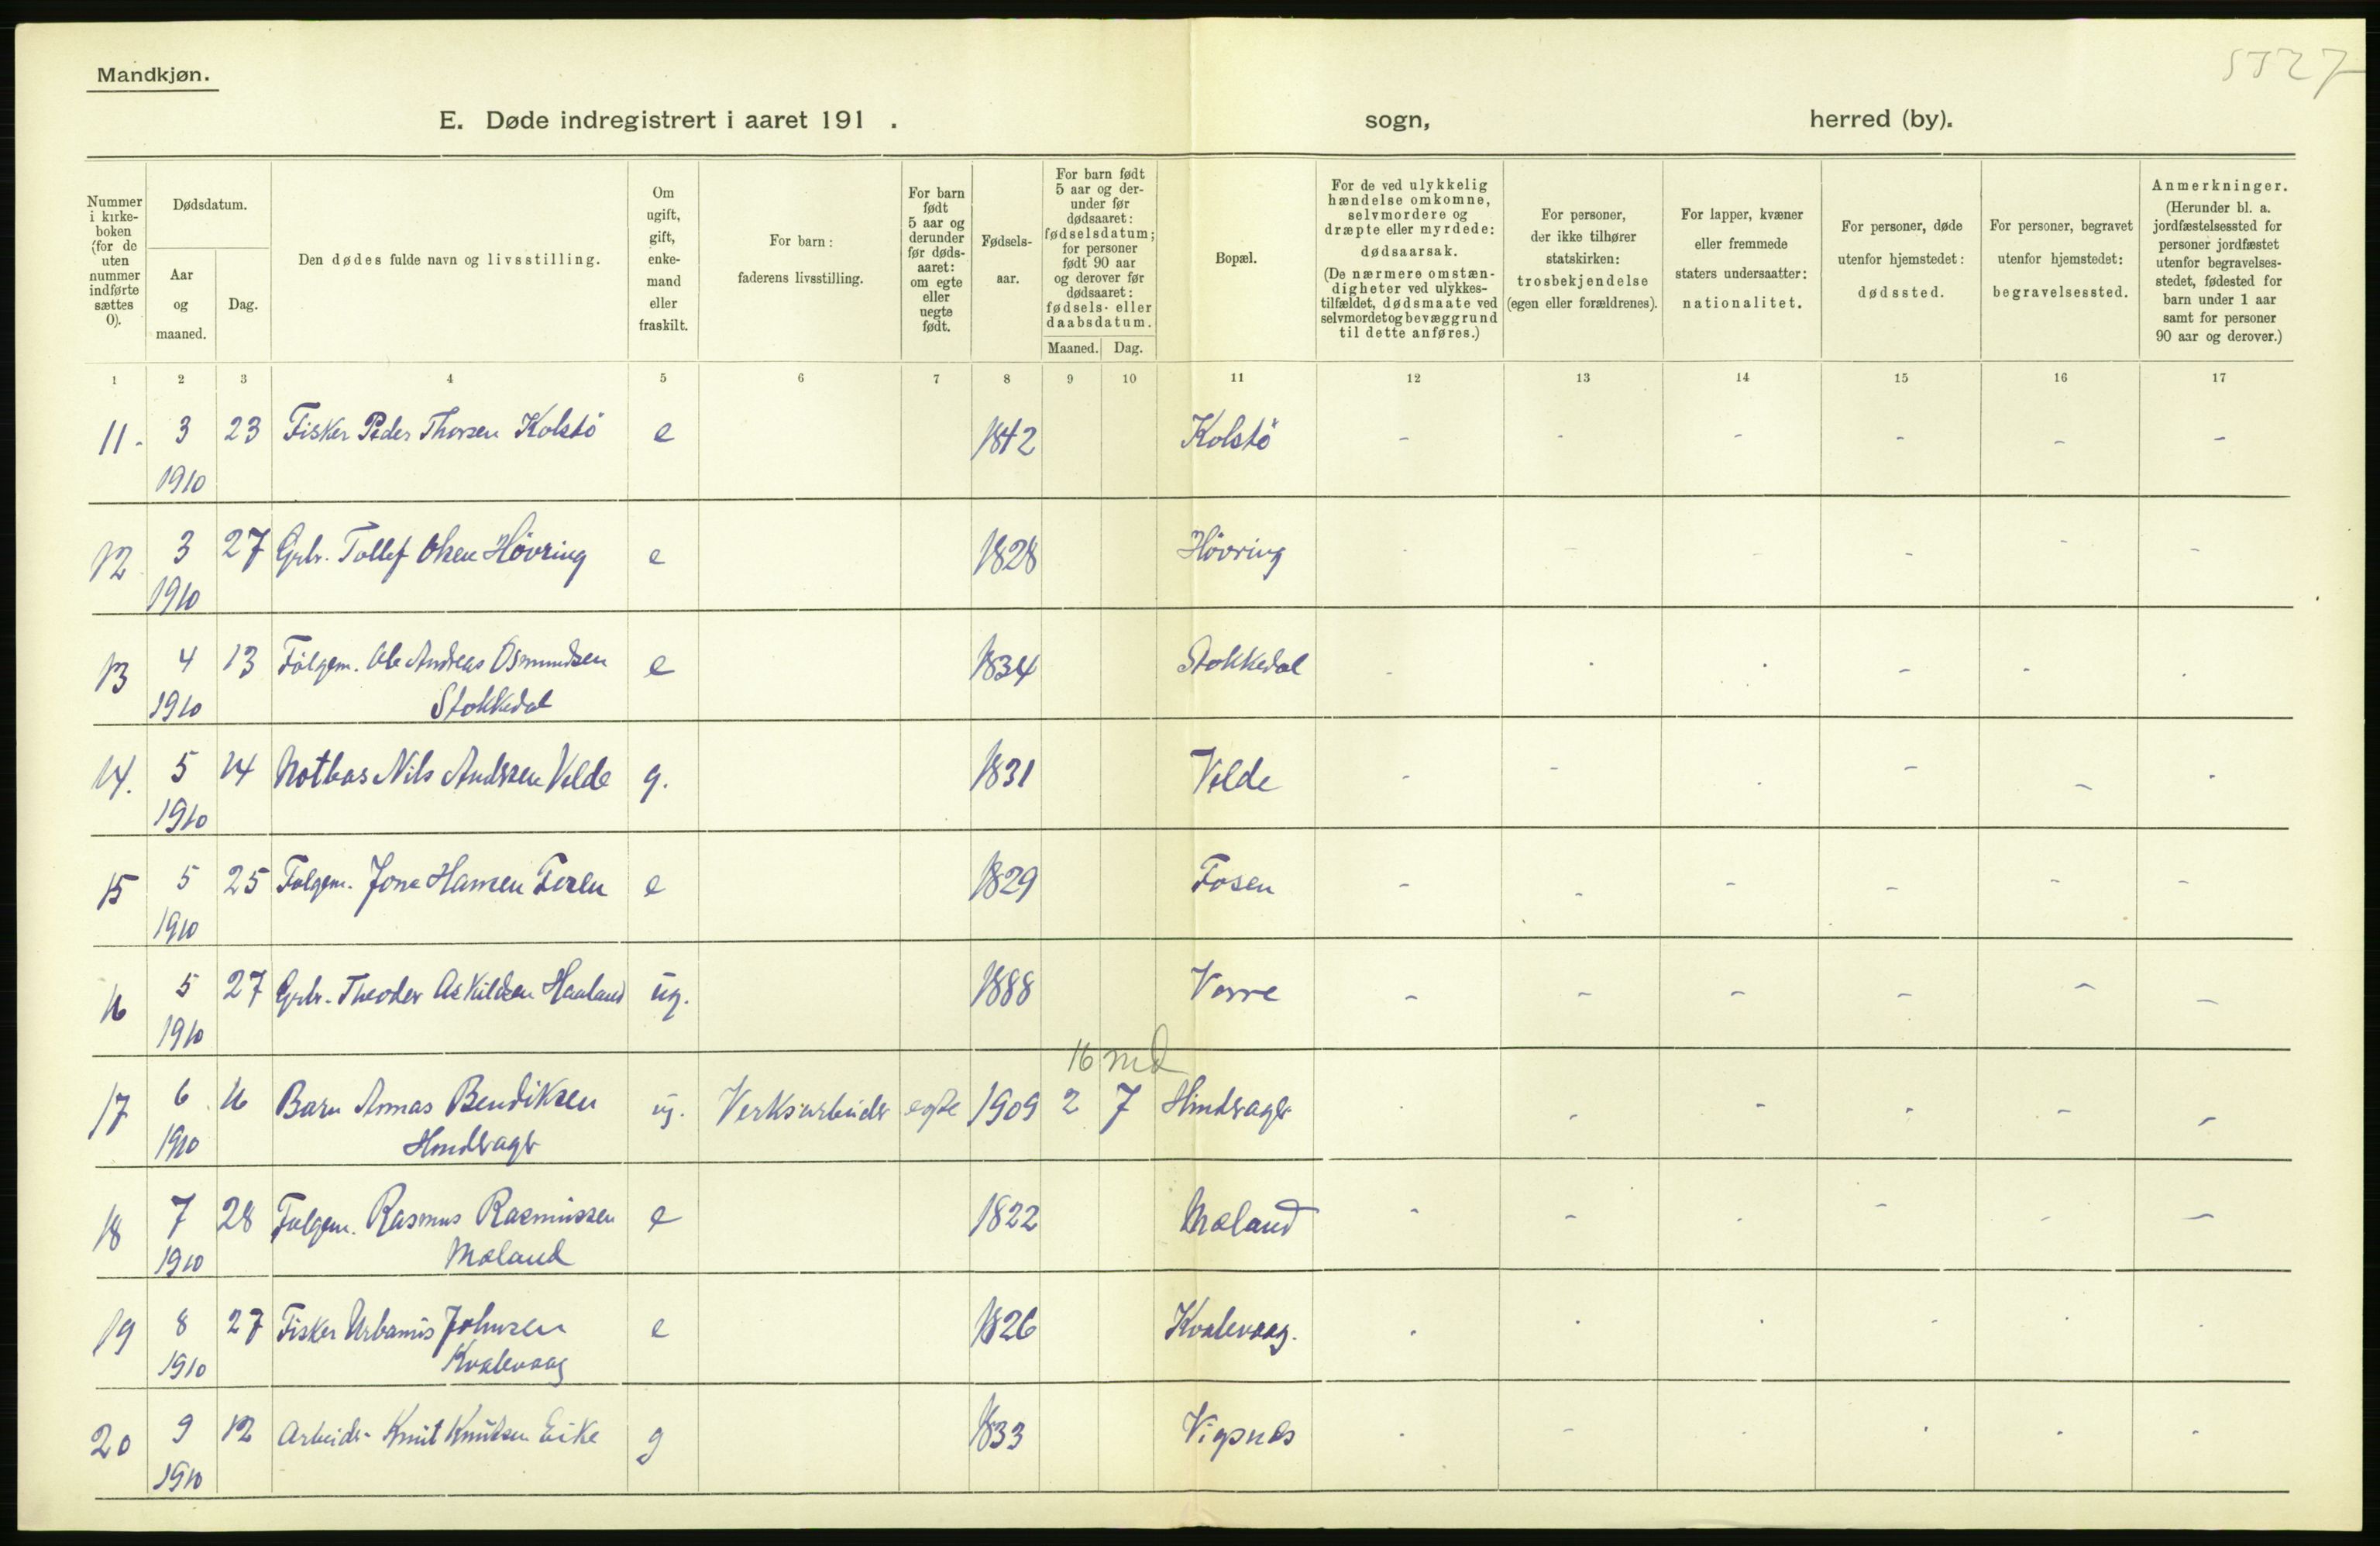 Mandkjøn.
5527
E. Døde indregistrert i aaret 191 . sogn, herred (by).
Nummer i kirke-boken (for de uten nummer indførte sættes 0).
Dødsdatum.
Aar og maaned.
Dag.
Den dødes fulde navn og livsstilling.
Om ugift, gift, enke-mand eller fraskilt.
For barn: faderens livsstilling.
For barn født 5 aar og derunder før døds-aaret: om egte eller uegte født.
Fødsels-aar.
For barn født 5 aar og der-under før dødsaaret: fødselsdatum; for personer født 90 aar og derover før dødsaaret: fødsels- eller daabsdatum.
Maaned. Dag.
Bopæl.
For de ved ulykkelig hændelse omkomne, selvmordere og dræpte eller myrdede: dødsaarsak. (De nærmere omstæn-digheter ved ulykkes-tilfældet, dødsmaate ved selvmordet og bevæggrund til dette anføres.)
For personer, der ikke tilhører statskirken: trosbekjendelse (egen eller forældrenes).
For lapper, kvæner eller fremmede staters undersaatter: nationalitet.
For personer, døde utenfor hjemstedet: dødssted.
For personer, begravet utenfor hjemstedet: begravelsessted.
Anmerkninger. (Herunder bl. a. jordfæstelsessted for personer jordfæstet utenfor begravelses-stedet, fødested for barn under 1 aar samt for personer 90 aar og derover.)
1 2 3 4 5 6 7 8 9 10 11 12 13 14 15 16 17
11. 3 23 Fisker Peder Thorsen Kolstö e 1842 Kolstö - - - - - -
1910
12 3 27 Grbr. Tollef Olsen Hövring e 1828 Hövring - - - - - -
1910
13 4 13 Fölgem. Ole Andreas Osmundsen e 1834 Stokkedal - - - - - -
1910 Stokkedal
14. 5 14 Notbas Nils Andersen Velde g. 1831 Velde - - - - - -
1910
15 5 25 Folgem. Jone Hansen Fosen e 1829 Fosen - - - - - -
1910
16 5 27 Grbr. Theodor Askildsen Haaland ug. 1888 Vorre - - - - - -
1910
16 md
17 6 16 Barn Annas Bendiksen ug. Verksarbeider egte 1909 2 7 Hinderager - - - - - -
1910 Hinderager
18 7 28 Folgem. Rasmus Rasmussen e 1822 Moland - - - - - -
1910 Moland
19 8 27 Fisker Urbanus Johnsen e 1826 Kvalevaag. - - - - - -
1910 Kvalevaag
20 9 12 Arbeider Knut Knutsen Eike g 1833 Vigsnes - - - - - -
1910